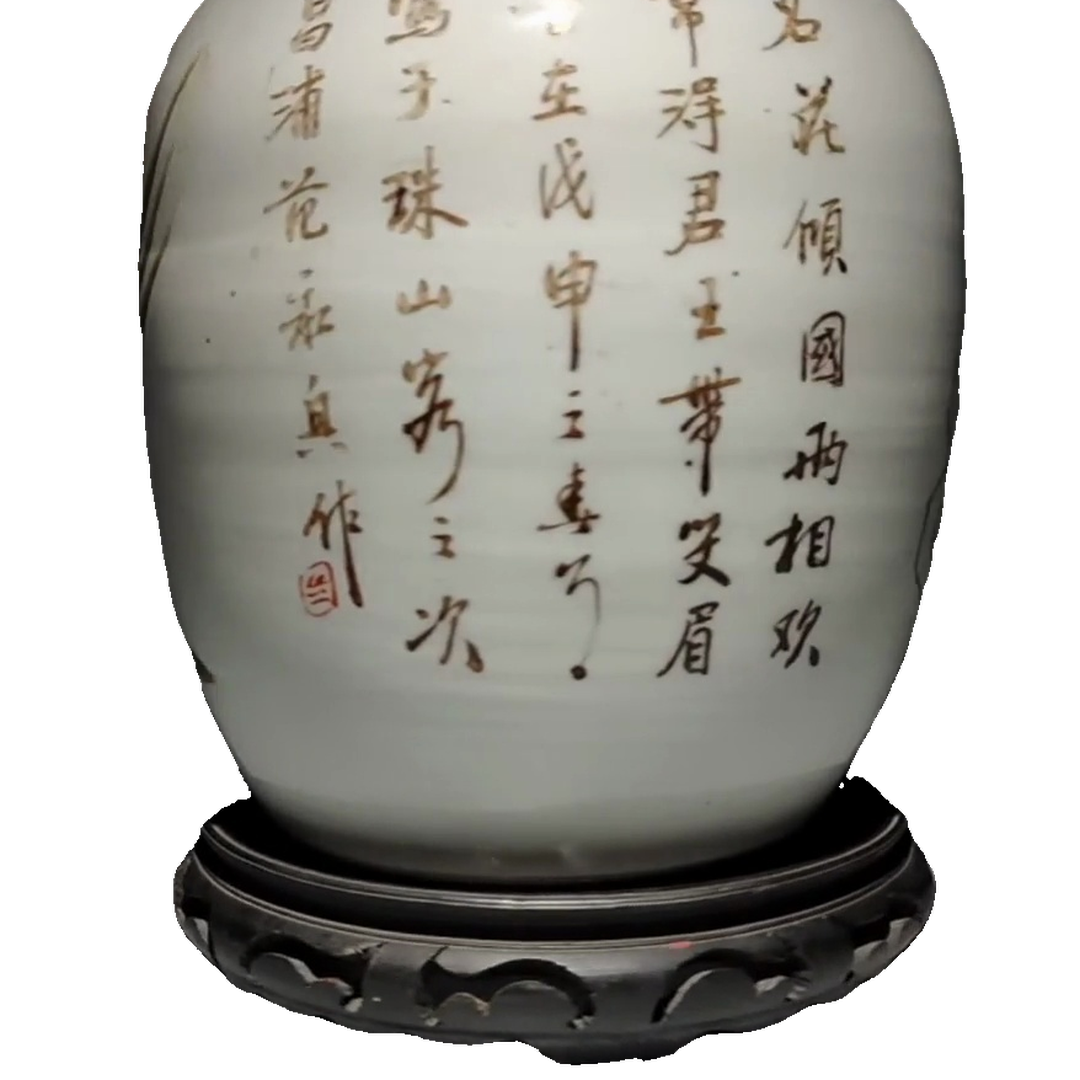 名花傾國兩相欢
常得君王帶笑眉
在戊申之春
寫于珠山客之次
昌浦范永作